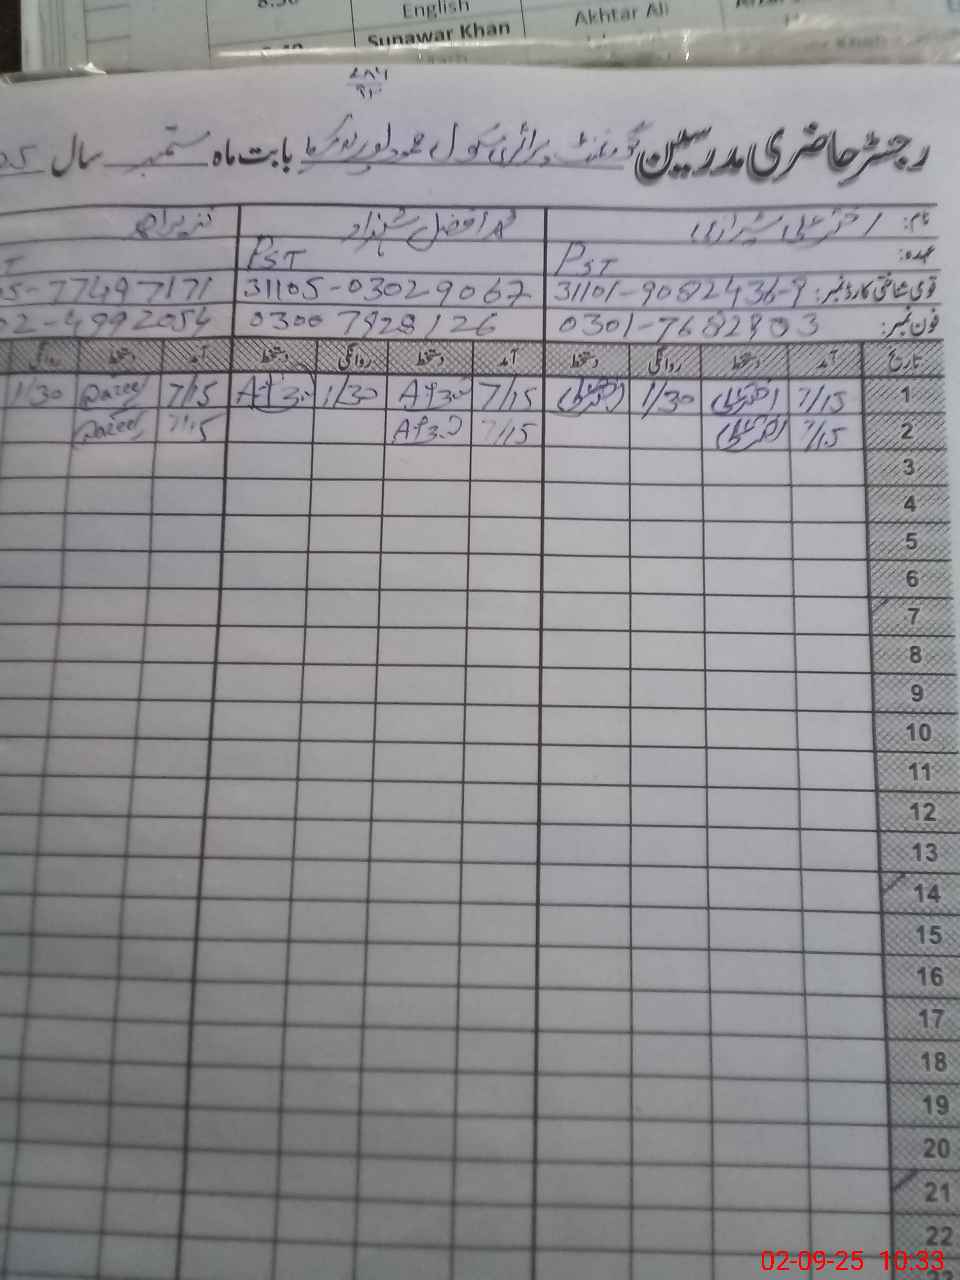 8:30
English
Akhtar Ali
Sunawar Khan
۷۸۶
۹۲
رجسٹر حاضری مدرسین گورنمنٹ پرائمری سکول بابت ماہ ستمبر سال
نام: اختر علی شیرازی محمد افضل شہزاد
عہدہ: PST PST
قومی شناختی کارڈ نمبر: 31101-9082436-9 31105-0302906 7 5-77497171
فون نمبر: 0301-7682803 0300 7828126 02-4992054
تاریخ آمد دستخط روانگی دستخط آمد دستخط روانگی دستخط آمد دستخط روانگی
1 7/15 اختر علی 1/30 اختر علی 7/15 1/30 7/15 1/30
2 7/15 اختر علی 7/15 7/15
3
4
5
6
7
8
9
10
11
12
13
14
15
16
17
18
19
20
21
22
23
02-09-25 10:33